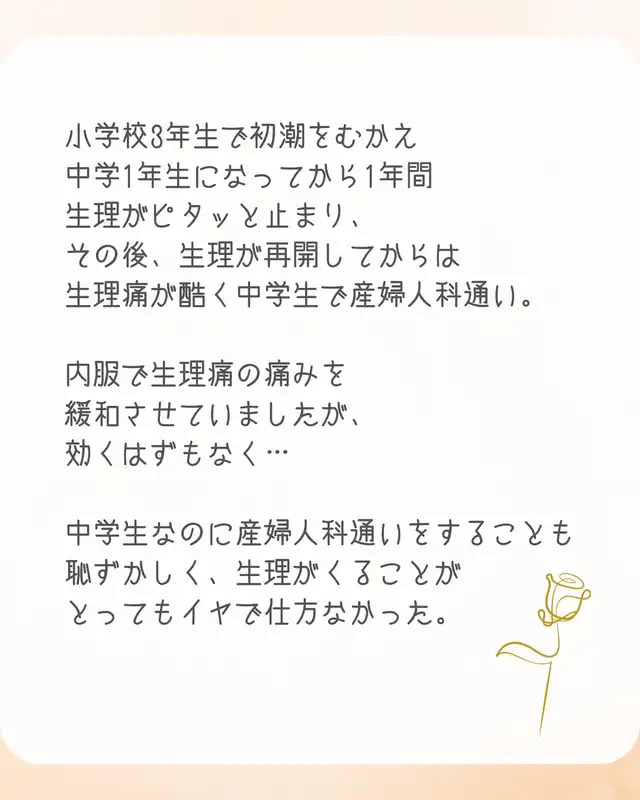 小学校3年生で初潮をむかえ
中学1年生になってから1年間
生理がピタッと止まり、
その後、生理が再開してからは
生理痛が酷く中学生で産婦人科通い。
内服で生理痛の痛みを
緩和させていましたが、
効くはずもなく…
中学生なのに産婦人科通いをすることも
恥ずかしく、生理がくることが
とってもイヤで仕方なかった。